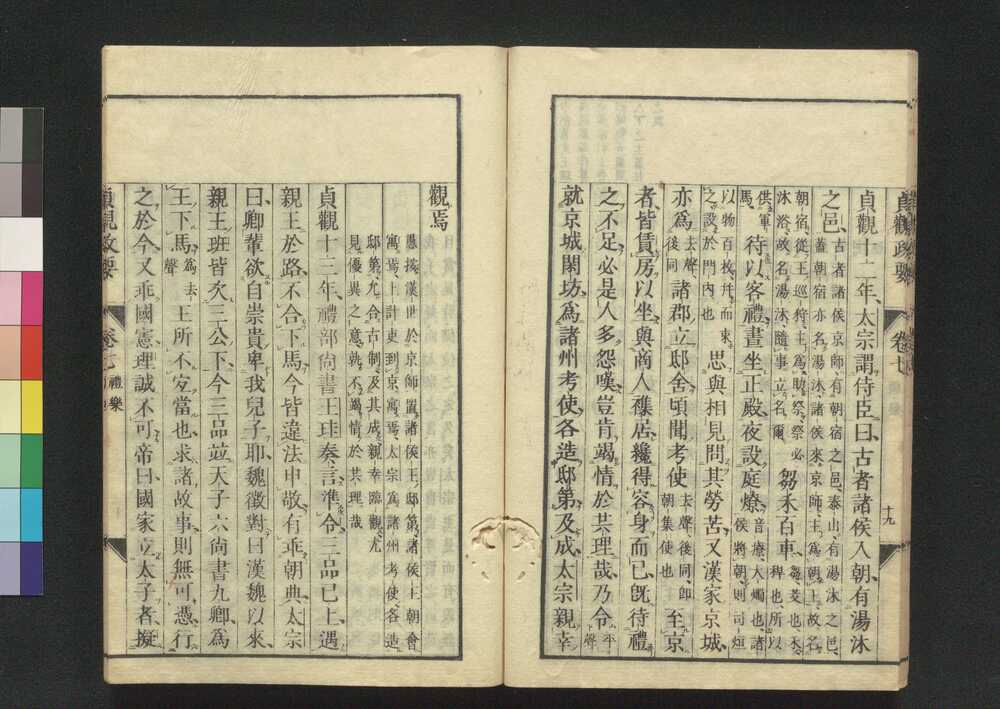 貞觀政要 卷七 十九
貞觀十二年太宗謂侍臣曰古者諸侯入朝有湯沐
之邑 古者諸侯京師有朝宿之邑泰山有湯沐之邑
蓋朝宿亦名湯沐諸侯來京師主爲朝王故名
朝宿從王巡狩主爲助祭祭必
沐浴故名湯沐隨事立名爾 芻禾百車 芻茭也禾
稈也所以
供軍
馬 待以客禮晝坐正殿夜設庭燎 音療大燭也諸
侯將朝則司烜
以物百枚并而束
之設於門內也 思與相見問其勞苦又漢家京城
亦爲 去聲
後同 諸郡立邸舍頃聞考使 去聲後同即
朝集使也 至京
者皆賃房以坐與商人襍居纔得容身而已旣待禮
之不足必是人多怨嘆豈肯竭情於共理哉乃令 平
聲
就京城閑坊爲諸州考使各造邸第及成太宗親幸
觀焉
愚按漢世於京師置諸侯王邸第諸侯王朝會
寓焉上計吏到京寓焉太宗爲諸州考使各造
邸第尤合古制及其成親幸臨觀尤
見優異之意孰不竭情於共理哉
貞觀十三年禮部尚書王珪奏言準令三品已上遇
親王於路不合下馬今皆違法申敬有乖朝典太宗
曰卿輩欲自崇貴卑我兒子耶魏徵對曰漢魏以來
親王班皆次三公下今三品竝天子六尚書九卿爲
王下馬 爲去
聲 王所不宜當也求諸故事則無可憑行
之於今又乖國憲理誠不可帝曰國家立太子者擬
貞觀政要 禮樂